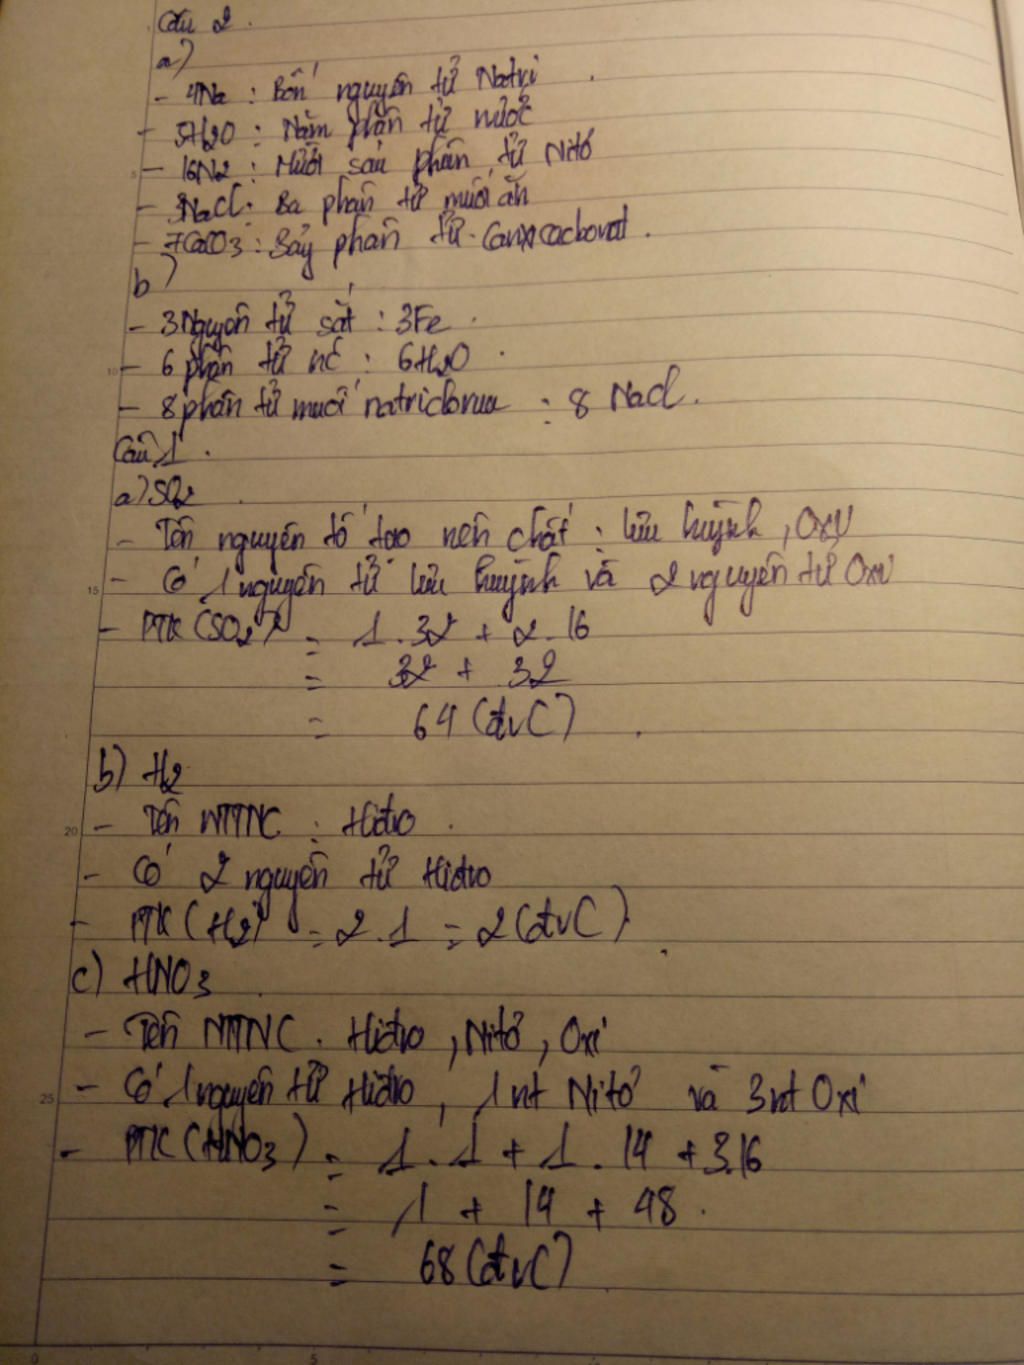 Câu 2.
a)
- 4Na : Bốn nguyên tử Natri.
- 5H2O : Năm phân tử nước
- 16N2 : Mười sáu phân tử Nitơ
- 3NaCl : Ba phân tử muối ăn
- 7CaCO3 : Bảy phân tử Canxicacbonat.
b)
- 3 Nguyên tử sắt : 3Fe.
- 6 phân tử nc : 6H2O.
- 8 phân tử muối natriclorua : 8 NaCl.
Câu 1.
a) SO2
- Tên nguyên tố tạo nên chất : lưu huỳnh, Oxy
- Có 1 nguyên tử lưu huỳnh và 2 nguyên tử Oxi
- PTK (SO2) = 1.32 + 2.16
= 32 + 32
= 64 (đvC).
b) H2
- Tên NTTNC : Hiđro.
- Có 2 nguyên tử Hiđro
- PTK (H2) = 2.1 = 2 (đvC).
c) HNO3
- Tên NTTNC. Hiđro, Nitơ, Oxi
- Có 1 nguyên tử Hiđro, 1 nt Nitơ và 3 nt Oxi
- PTK (HNO3) = 1.1 + 1.14 + 3.16
= 1 + 14 + 48.
= 68 (đvC)